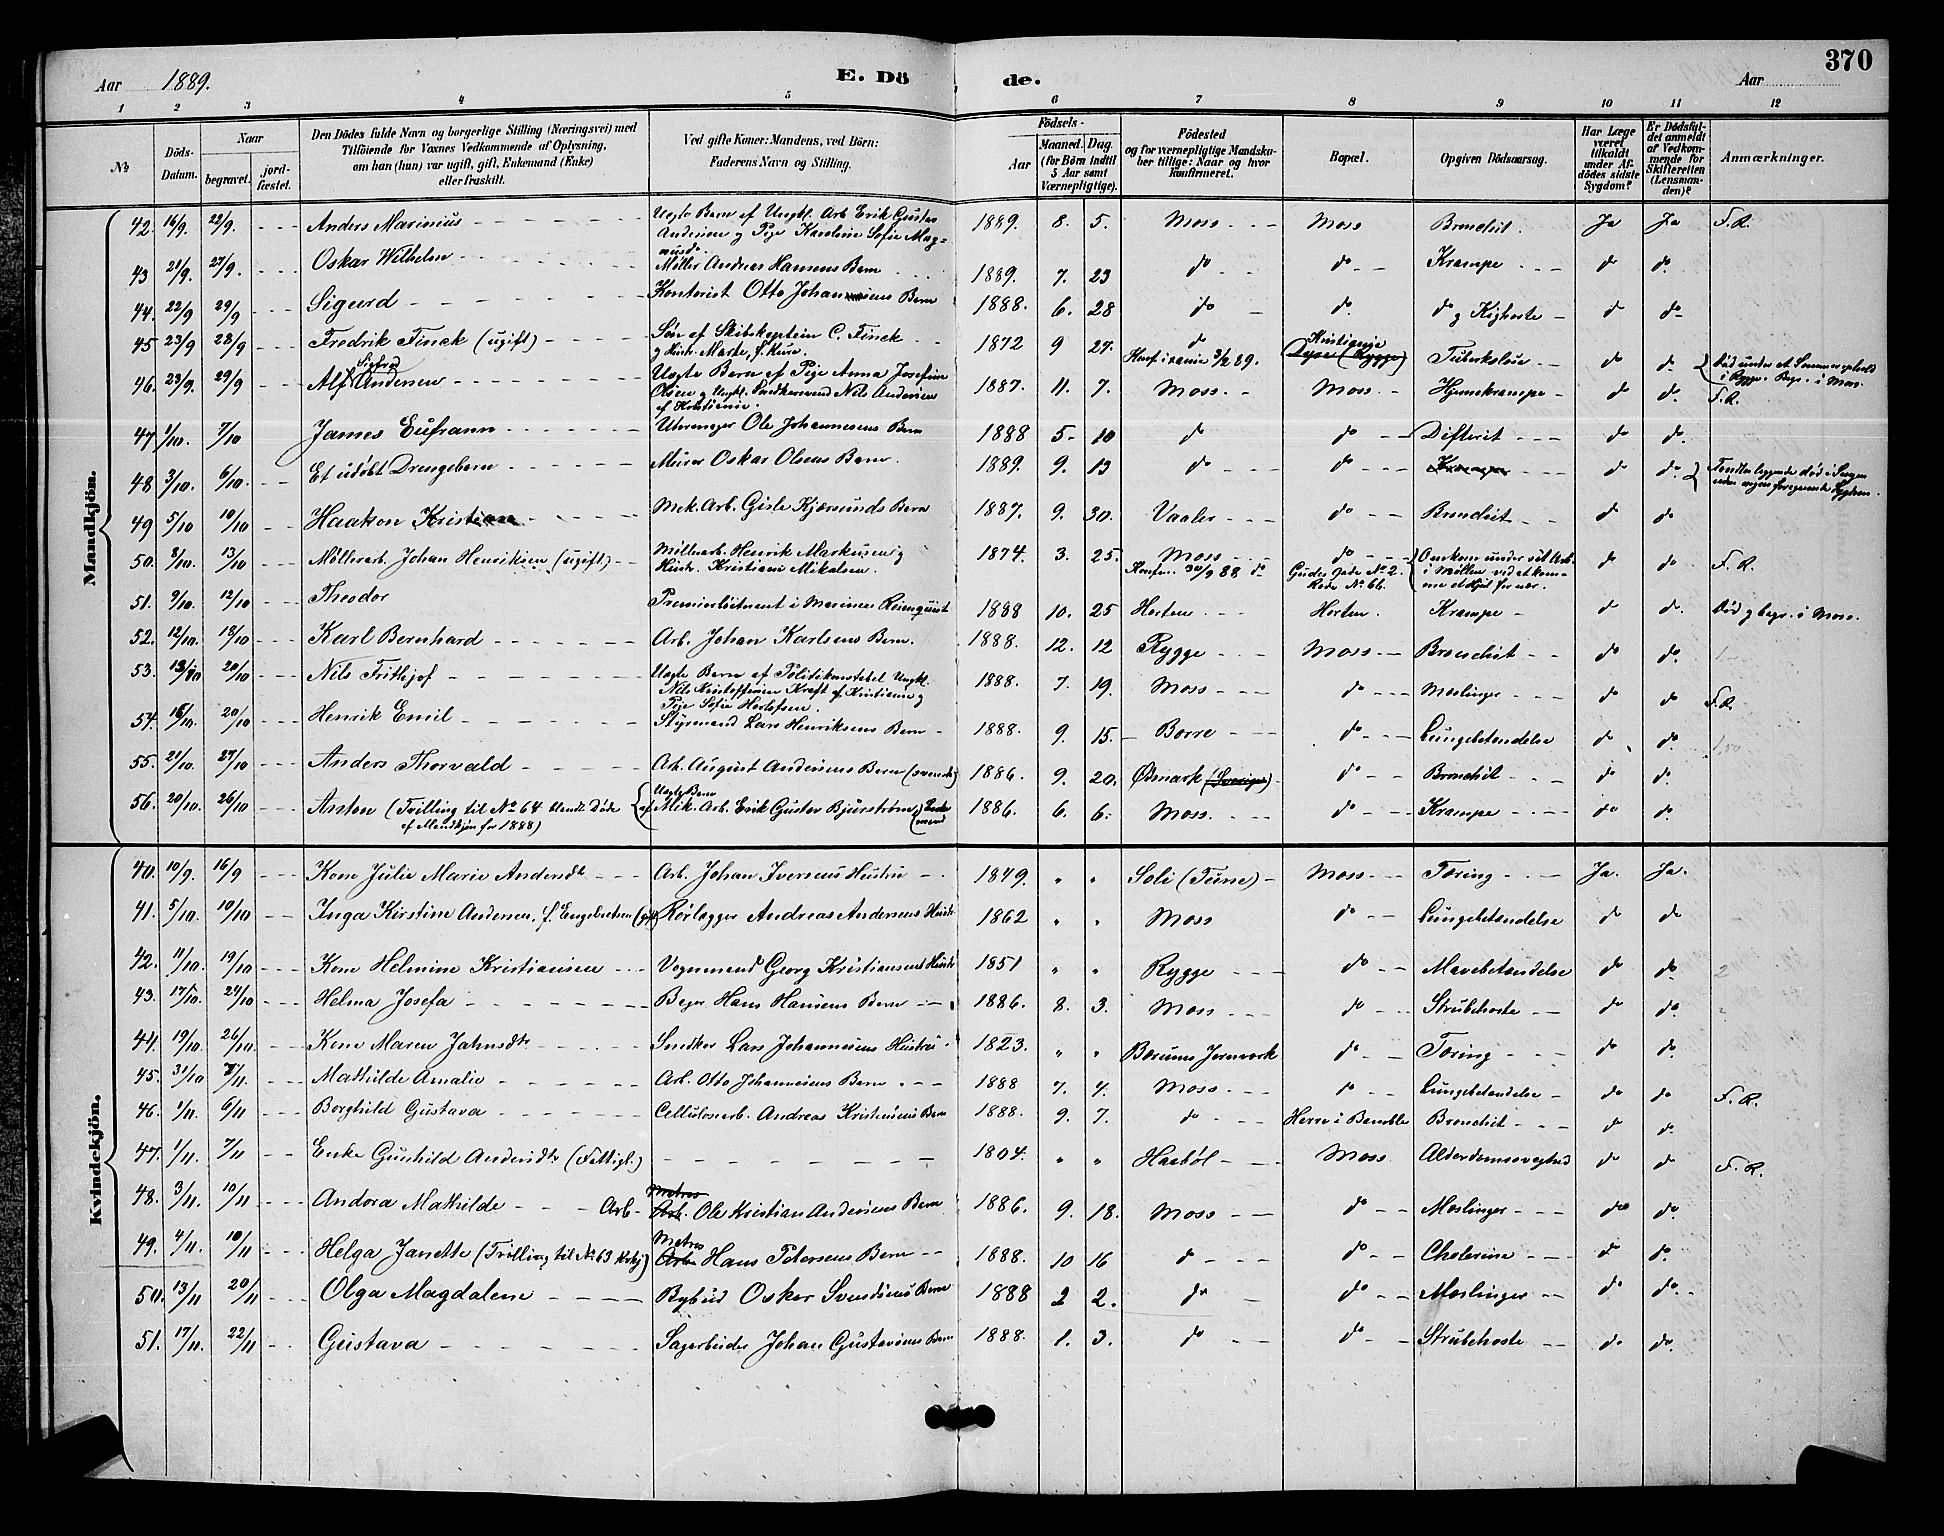 370
Aar 1889. E. Dö de. Aar
1 2 3 4 5 6 7 8 9 10 11 12
№ Döds-Datum. Naar begravet. jordfæstet. Den Dödes fulde Navn og borgerlige Stilling (Næringsvei) med Tilföiende for Voxnes Vedkommende af Oplysning, om han (hun) var ugift, gift, Enkemand (Enke) eller fraskilt. Ved gifte Koner: Mandens, ved Börn: Faderens Navn og Stilling. Födsels- Aar Maaned. Dag. (for Börn indtil 5 Aar samt Værnepligtige). Födested og for værnepligtige Mandskaber tillige: Naar og hvor konfirmeret. Bopæl. Opgiven Dödsaarsag. Har Læge været tilkaldt under Afdödes sidste Sygdom? Er Dödsfaldet anmeldt af Vedkommende for Skifteretten (Lensmanden)? Anmærkninger.
Mandkjön.
42. 16/9. 22/9. Anders Marinius Uægte Barn af Ungkl. Arb. Erik Gustav Andersen og Pige Karoline Sofie Magnusd. 1889. 8. 5. Moss Moss Bronchit. Ja Ja F.R.
43 21/9. 27/9. Oskar Wilhelm Møller Andreas Hansens Barn 1889. 7. 23 do do Krampe do do.
44. 22/9 29/9 Sigurd Kontorist Otto Johansens Barn 1888. 6. 28 do do. do og Kighoste do do
45 23/9 28/9 Fredrik Finck (ugift) Søn af Skibskaptein C. Finck og Hustr. Marte, f. Kure. 1872 9 27. do Konf. i samme 3/2 89. Kristiania Dyre (Rygge) Tuberkulose do do. Død under et Sommerophold i Rygge. Begr. i Moss.
46. 23/9. 29/9 Alf Sigfred Andersen Uægte Barn af Pige Anna Josefine Olsen og Ungkl. Nils Andersens af Kristiania. 1887. 11. 7. Moss. Moss. Hjernekrampe do do. F.R.
47 1/10. 7/10 James Eufrann Uhrmager Ole Johannesens Barn 1888 5. 10 do do Difterit do do.
48 3/10. 6/10 Et udøbt Drengebarn Murer Oskar Olsens Barn. 1889. 9. 13 do do Krampe do do
49 5/10 10/10 Haakon Kristian Mek. Arb. Gisle Kjærsunds Barn 1887. 9. 30. Vaaler do Bronchit do do
50. 8/10. 13/10 Møllerarb. Johan Henriksen (ugift) Møllerarb. Henrik Markusen og Hustr. Kristiane Mikalsen. 1874. 3. 25. Moss Konf. 30/9 88 do do Gudes Gade No 2. Rode No 66. Omkom under sit Arb. i Møllen ved at komme et Hjul for nær. do do F.R.
51. 9/10. 12/10 Theodor Premierløitnant i Marinen 1888 10. 25 Horten Horten. Krampe do do. Død og begr. i Moss.
52. 12/10. 18/10 Karl Bernhard Arb. Johan Karlsens Barn. 1888. 12. 12 Rygge Moss Bronchit do do.
53. 13/10 20/10 Nils Frithjof Uægte Barn af Politikonstabel Ungkl. Nils Kristoffersen Kraft af Kristiania og Pige Sofie Herlofsen. 1888. 7. 19. Moss do Meslinger do do. F.R.
54. 16/10. 20/10 Henrik Emil Styrmand Lars Henriksens Barn 1888. 9. 15. Borre do Lungebetændelse do do.
55. 21/10. 27/10 Anders Thorvald Arb. August Andersens Barn (svensk) 1886. 9. 20. Ødmark (Sverige) do Bronchit do do.
56. 20/10. 26/10 Anton (Tvilling til No 64 blandt Døde af Mandkjøn for 1888) Uægte Barn af Mek. Arb. Erik Gustav Bjurstrøm 1886. 6. 6. Moss. do Krampe do do.
Kvindekjön.
40. 10/9. 16/9 Kone Julie Marie Andersdt. Arb. Johan Iversens Hustru 1849. " " Soli (Tune) Moss Tæring Ja. Ja.
41. 5/10. 10/10 Inga Kirstine Andersen, f. Engebretsen (gift) Rørlægger Andreas Andersens Hustr. 1862 " " Moss do Lungebetændelse do do
42. 11/10. 19/10 Kone Helmine Kristiansen Vognmand Georg Kristiansens Hustr. 1851 " " Rygge do Mavebetændelse do do 2
43. 17/10. 24/10 Helma Josefa Bager Hans Hansens Barn 1886. 8. 3. Moss do Strubehoste do do.
44. 19/10. 26/10. Kone Maren Jahnsdt. Snedker Lars Johannesens Hustru 1823. " " Bærums Jernverk do Tæring do do.
45. 31/10 7/11. Mathilde Amalie Arb. Otto Johannesens Barn 1888 7. 4. Moss do Lungebetændelse do do F.R.
46. 1/11. 6/11 Borghild Gustava Cellulosearb. Andreas Kristensens Barn 1888. 9. 7. do Herre i Bamble Bronchit do do.
47. 1/11. 7/11 Enke Gunhild Andersdt. (Fattigl.) 1804. " " Haabøl Moss Alderdomssvaghed do do F.R.
48. 3/11. 10/11 Andora Mathilde Arb. Ole Kristian Andersens Barn 1886. 9. 18. Moss do Meslinger do do.
49. 4/11. 10/11 Helga Janette (Tvilling til No 63 Kvkj) Matros Hans Petersens Barn 1888. 10 16 do do Cholerine do do.
50. 13/11 20/11 Olga Magdalene Bybud Oskar Svendsens Barn 1888 2 2. do do Meslinger do do
51. 17/11. 22/11 Gustava Sagarbeider Johan Gustavsens Barn 1888. 1. 3. do do Strubehoste do do.